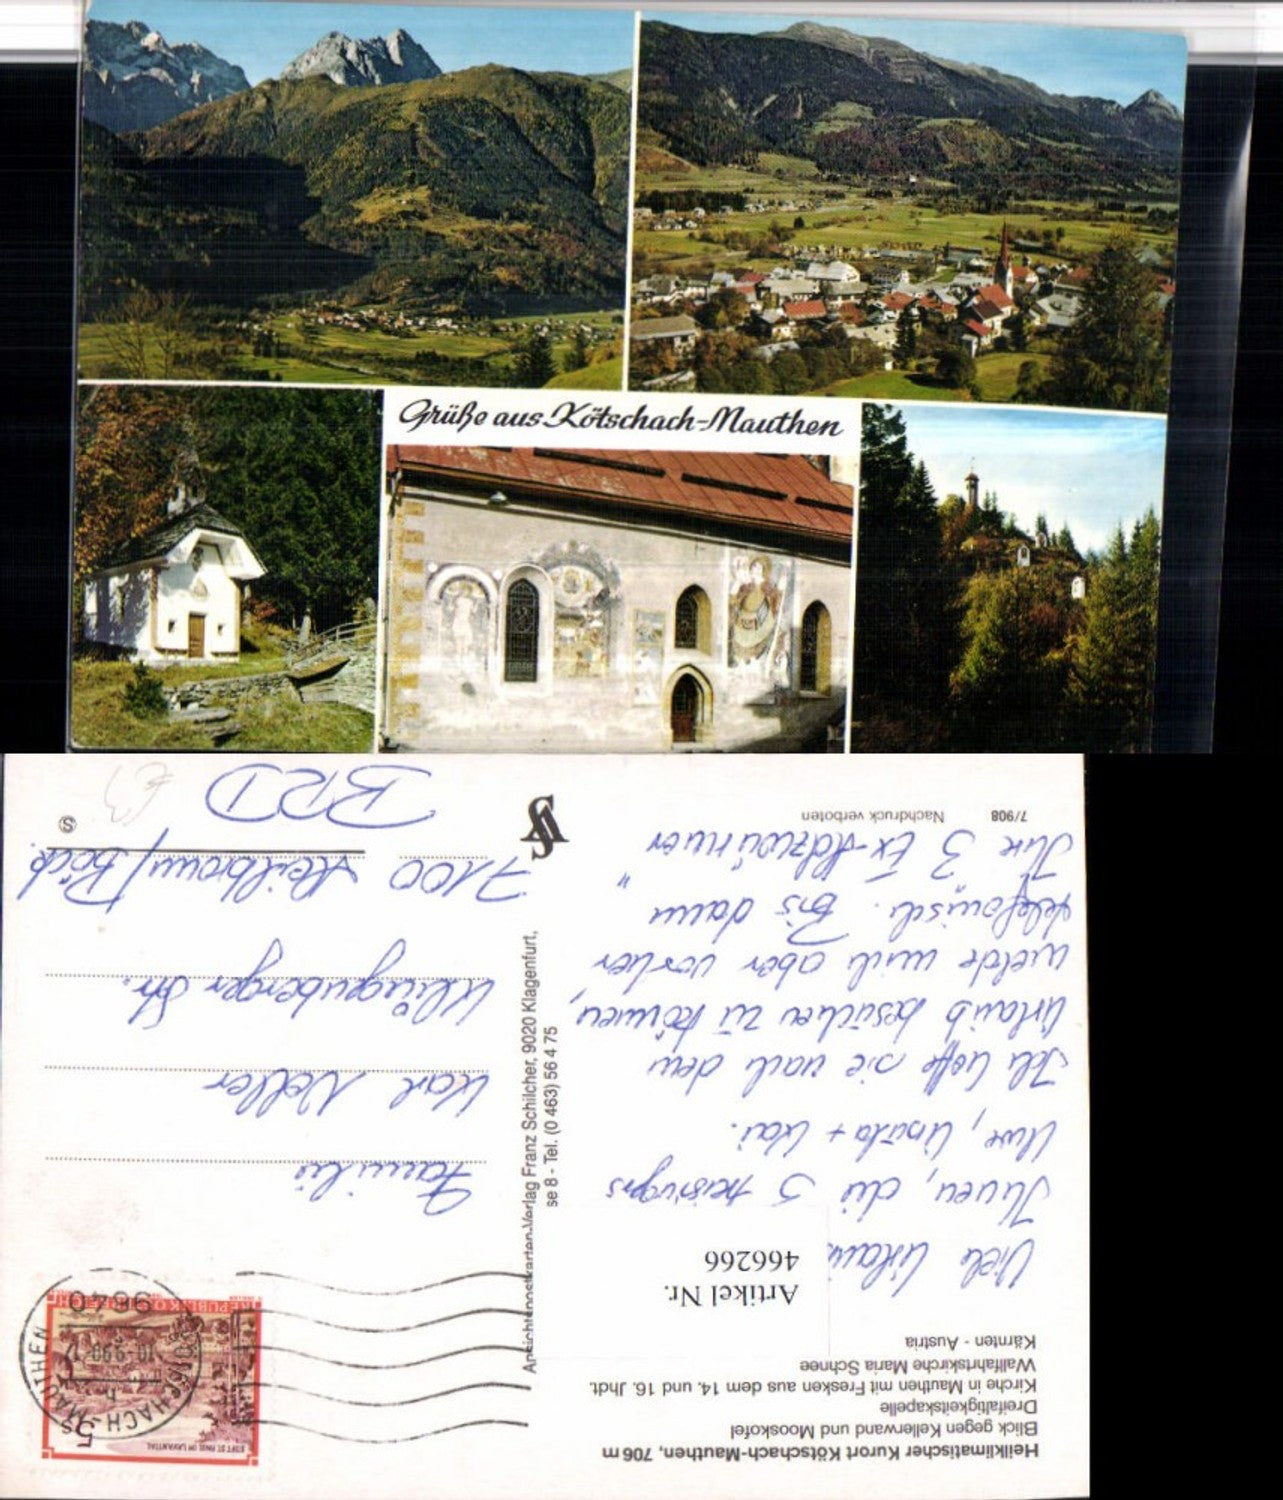 Grüße aus Kötschach-Mauthen
Heilklimatischer Kurort Kötschach-Mauthen, 706 m
Blick gegen Kellerwand und Mooskofel
Dreifaltigkeitskapelle
Kirche in Mauthen mit Fresken aus dem 14. und 16. Jhdt.
Wallfahrtskirche Maria Schnee
Kärnten - Austria
Artikel Nr.
466266
Viele
Ihnen, die 5
Uwe, Ursula + Kai.
Ich hoffe sie nach dem
Urlaub besuchen zu können,
melde mich aber vorher
telefonisch. Bis dann
Ihre 3 Ex-
7/908
Nachdruck verboten
Ansichtspostkarten-Verlag Franz Schilcher, 9020 Klagenfurt,
se 8 - Tel. (0 463) 56 4 75
5 S
STIFT ST. PAUL IM LAVANTTAL
REPUBLIK ÖSTERREICH
KÖTSCHACH-MAUTHEN
10.-9.90-
9640
Familie
Karl Neller
Klingenberger Str.
7100 Heilbronn/Böck.
BRD
S